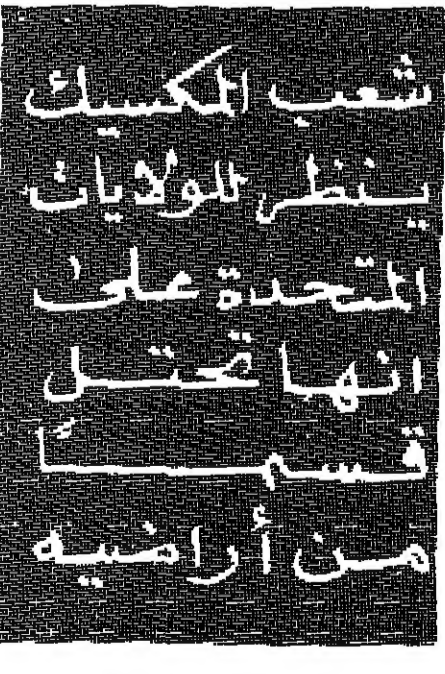 شعب المكسيك
ينظر للولايات
المتحدة على
انها تحتل
قسماً
من أراضيه